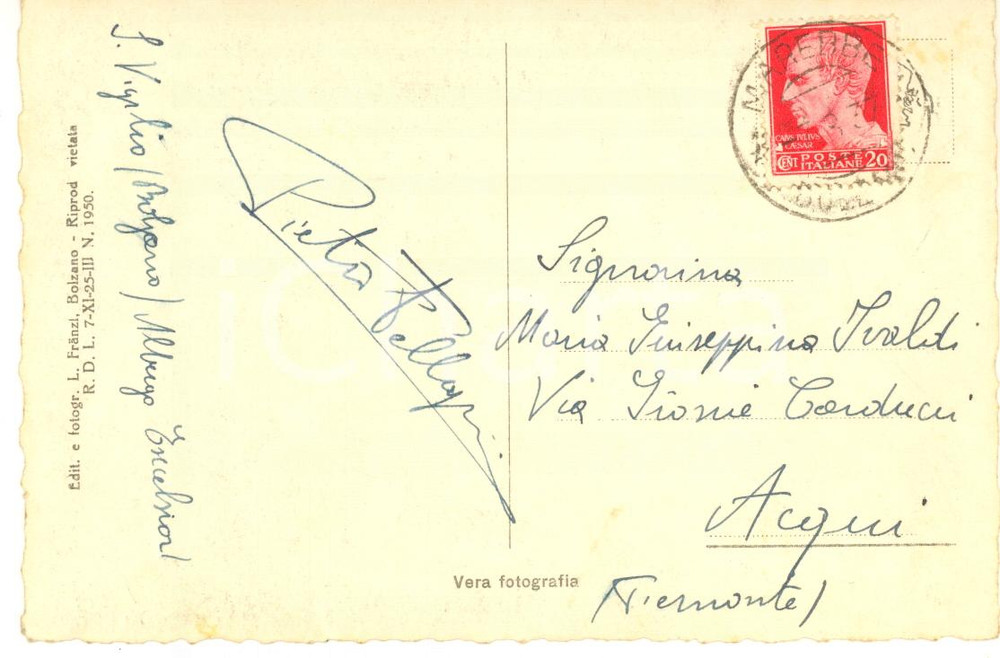 S. Vigilio / Bolzano / Albergo Excelsior /
Edit. e fotogr. L. Fränzl, Bolzano - Riprod vietata
R. D. L. 7-XI-25-III N. 1950.
Pietro
CAIVS IVLIVS
CAESAR
CENT. POSTE ITALIANE 20
Signorina
Maria Giuseppina Ivaldi
Via Giosuè Carducci
Acqui
(Piemonte)
Vera fotografia